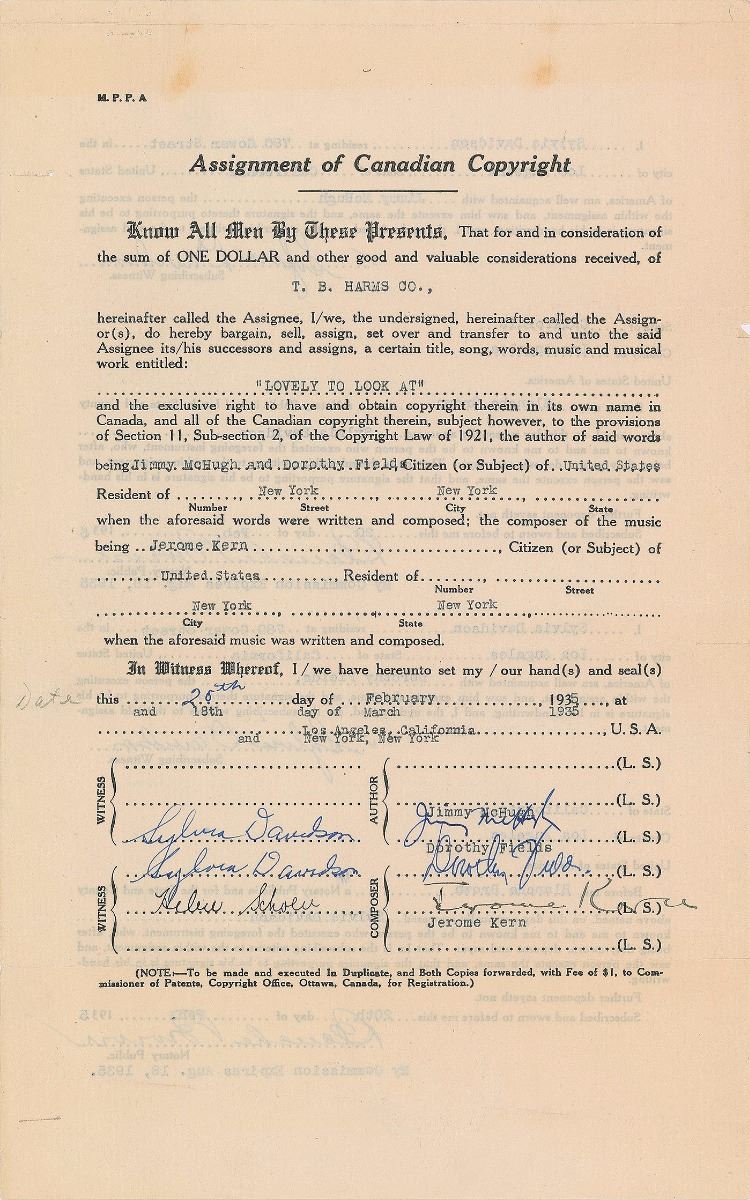 M. P. P. A
Assignment of Canadian Copyright
Know All Men By These Presents, That for and in consideration of
the sum of ONE DOLLAR and other good and valuable considerations received, of
T. B. HARMS CO.,
hereinafter called the Assignee, I/we, the undersigned, hereinafter called the Assign-
or(s), do hereby bargain, sell, assign, set over and transfer to and unto the said
Assignee its/his successors and assigns, a certain title, song, words, music and musical
work entitled:
"LOVELY TO LOOK AT"
and the exclusive right to have and obtain copyright therein in its own name in
Canada, and all of the Canadian copyright therein, subject however, to the provisions
of Section 11, Sub-section 2, of the Copyright Law of 1921, the author of said words
being Jimmy McHugh and Dorothy Fields Citizen (or Subject) of United States
Resident of New York, New York
Number Street City State
when the aforesaid words were written and composed; the composer of the music
being Jerome Kern, Citizen (or Subject) of
United States, Resident of
Number Street
New York New York
City State
when the aforesaid music was written and composed.
In Witness Whereof, I/we have hereunto set my/our hand(s) and seal(s)
Date this 20th day of February, 1935, at
and 18th day of March 1935
Los Angeles, California, U. S. A.
and New York, New York
WITNESS AUTHOR (L. S.)
(L. S.)
Jimmy McHugh
Sylvia Davidson Jimmy McHugh (L. S.)
Dorothy Fields
Sylvia Davidson Dorothy Fields (L. S.)
WITNESS Helen Schoen COMPOSER Jerome Kern (L. S.)
Jerome Kern
(L. S.)
(NOTE:—To be made and executed In Duplicate, and Both Copies forwarded, with Fee of $1, to Com-
missioner of Patents, Copyright Office, Ottawa, Canada, for Registration.)